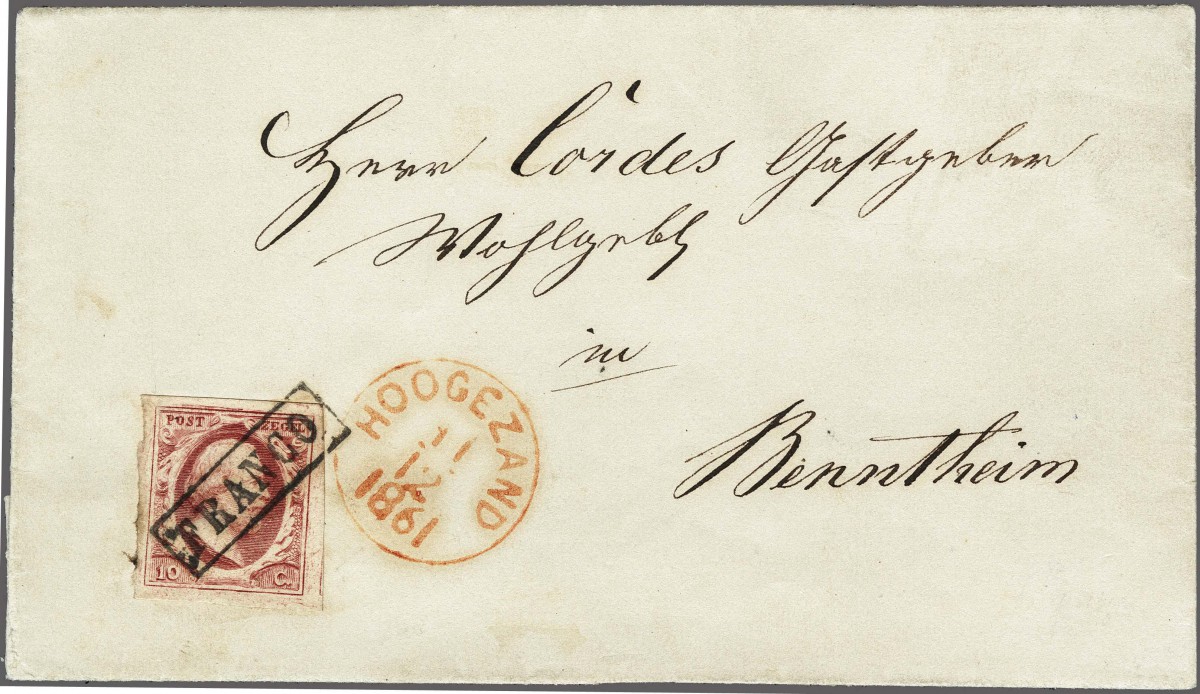 Herr Cordes Gastgeber
Wohlgeb
in
Benntheim
POST ZEGEL
FRANCO
10 C.
HOOGEZAND
11
12
1861